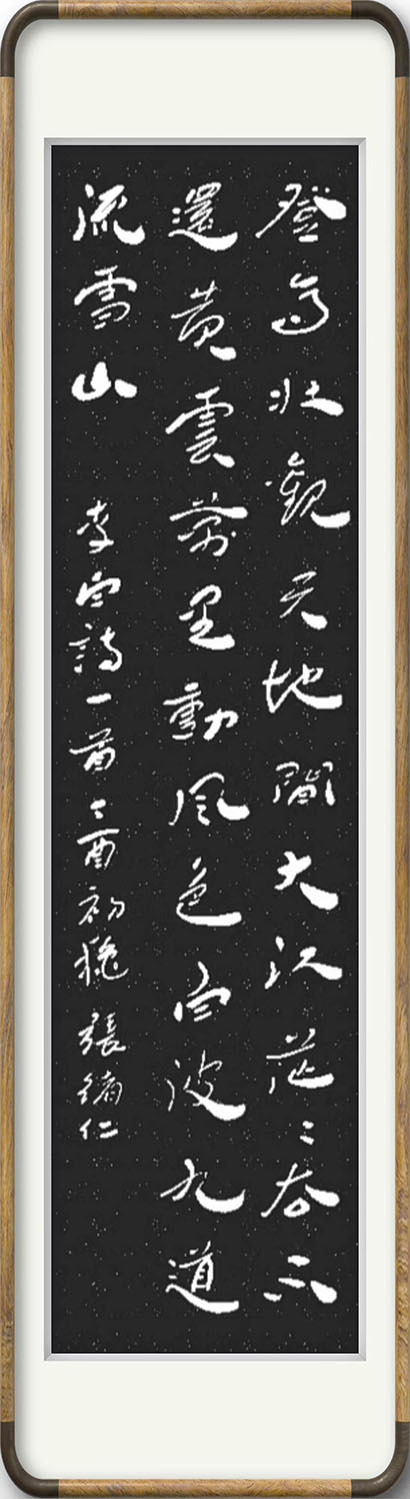 登高壯觀天地間大江茫〻去不
還黃雲萬里動風色白波九道
流雪山 李白詩一首乙酉初穐 張仁